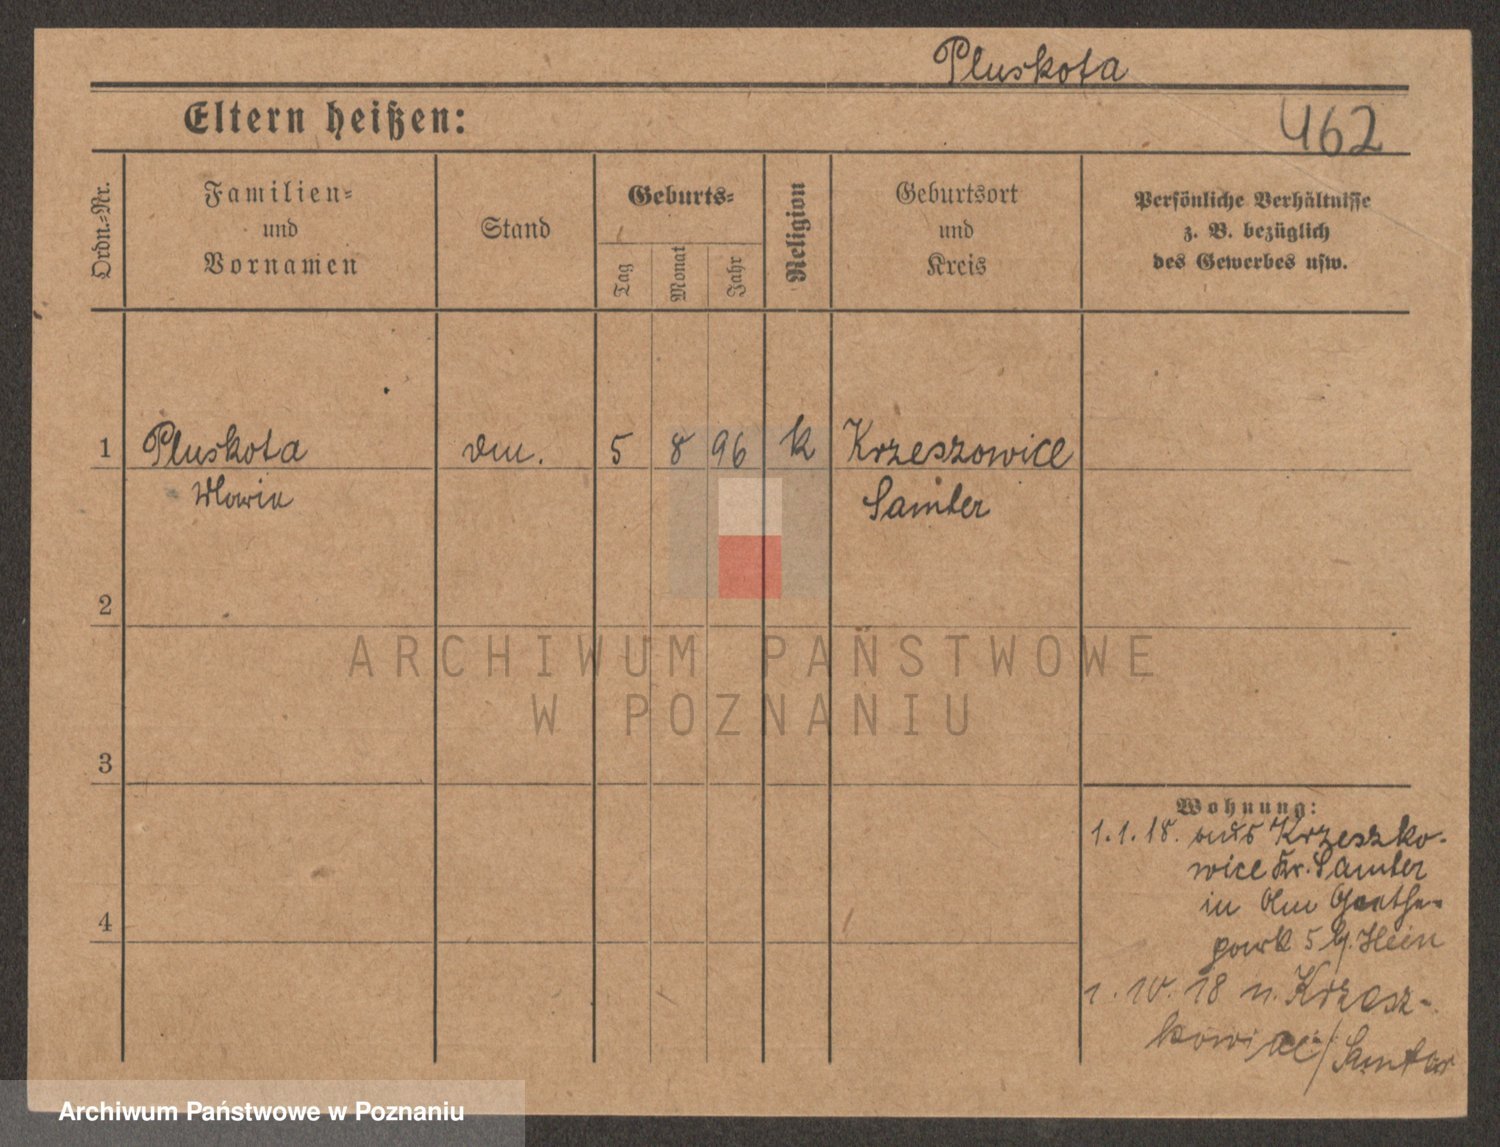 Pluskota
Eltern heißen:
462
Ordn.=Nr.
Familien=
und
Vornamen
Stand
Geburts=
Tag
Monat
Jahr
Religion
Geburtsort
und
Kreis
Persönliche Verhältnisse
z. B. bezüglich
des Gewerbes usw.
1 Pluskota 5 8 96 k Krzeszowice
Samter
2
3
4
ARCHIWUM PAŃSTWOWE
W POZNANIU
Wohnung:
1.1.18. aus Krzeszko-
wice Kr. Samter
in Goethe-
park 5 b/. Hein
1.10.18 n. Krzesz-
kowice/Samter
Archiwum Państwowe w Poznaniu